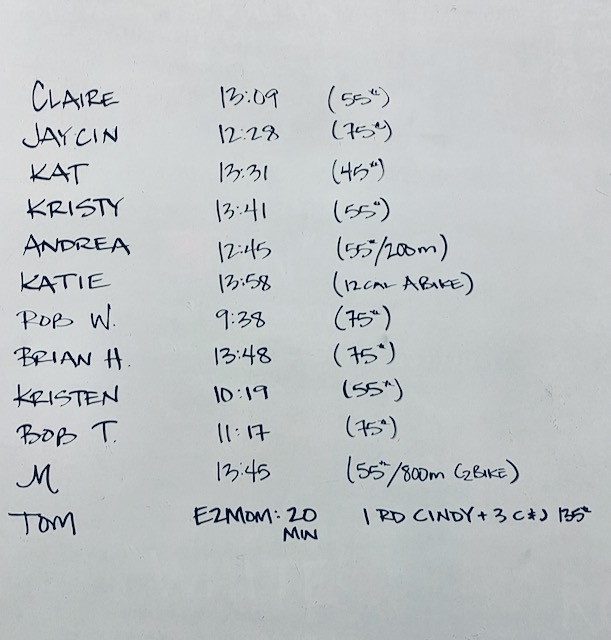 CLAIRE 13:09 (55#)
JAYCIN 12:28 (75#)
KAT 13:31 (45#)
KRISTY 13:41 (55#)
ANDREA 12:45 (55#/200m)
KATIE 13:58 (12 CAL ABIKE)
ROB W. 9:38 (75#)
BRIAN H. 13:48 (75#)
KRISTEN 10:19 (55#)
BOB T. 11:17 (75#)
M 13:45 (55#/800m C2BIKE)
TOM E2MOM: 20 1 RD CINDY + 3 C+J 135#
MIN